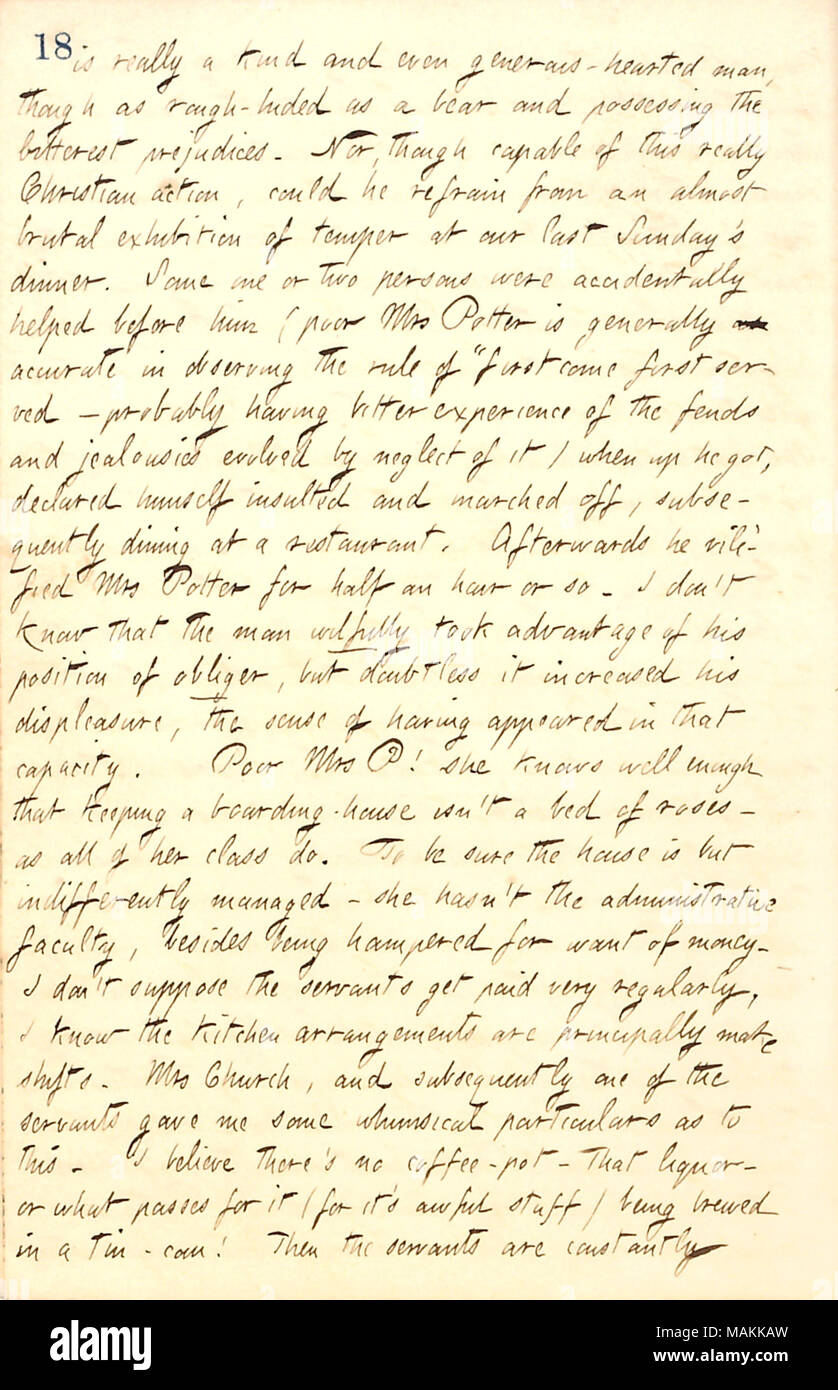 18
is really a kind and even generous-hearted man,
though as rough-hided as a bear and possessing the
bitterest prejudices. Nor, though capable of this really
Christian action, could he refrain from an almost
brutal exhibition of temper at our last Sunday's
dinner. Some one or two persons were accidentally
helped before him (poor Mrs Potter is generally
accurate in observing the rule of "first come first ser-
ved — probably having bitter experience of the feuds
and jealousies evolved by neglect of it) when up he got,
declared himself insulted and marched off, subse-
quently dining at a restaurant. Afterwards he vili-
fied Mrs Potter for half an hour or so. I don't
know that the man wilfully took advantage of his
position of obliger, but doubtless it increased his
displeasure, the sense of having appeared in that
capacity. Poor Mrs P! she knows well enough
that keeping a boarding-house isn't a bed of roses —
as all of her class do. To be sure the house is but
indifferently managed — she hasn't the administrative
faculty, besides being hampered for want of money.
I don't suppose the servants get paid very regularly,
I know the kitchen arrangements are principally make
shifts. Mrs Church, and subsequently one of the
servants gave me some whimsical particulars as to
this. I believe there's no coffee-pot — that liquor —
or what passes for it (for it's awful stuff) being brewed
in a tin-can! Then the servants are constantly
alamy
Image ID: MAKKAW
www.alamy.com